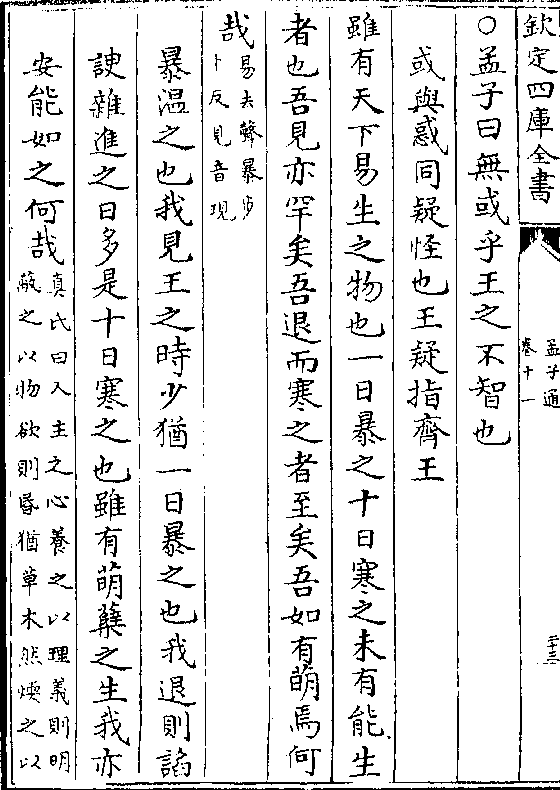 欽定四庫全書
孟子通
卷十一
二十三
○孟子曰無或乎王之不智也
或與惑同疑怪也王疑指齊王
雖有天下易生之物也一日暴之十日寒之未有能生
者也吾見亦罕矣吾退而寒之者至矣吾如有萌焉何
哉
易去聲暴步
卜反見音現
暴溫之也我見王之時少猶一日暴之也我退則諂
諛雜進之日多是十日寒之也雖有萌蘖之生我亦
安能如之何哉
真氏曰人主之心養之以理義則明
蔽之以物欲則昏猶草木然煗之以